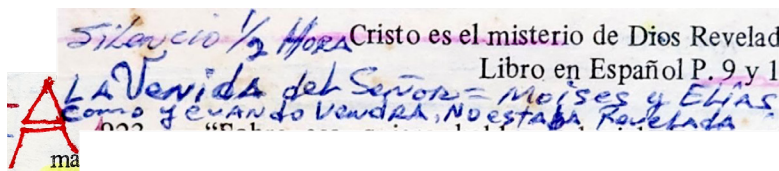 Silencio 1/2 Hora Cristo es el misterio de Dios Revelad
Libro en Español P. 9 y 1
LA Venida del Señor = Moises y Elías
Como y cuando vendra, No estaba Revelada
A
ma